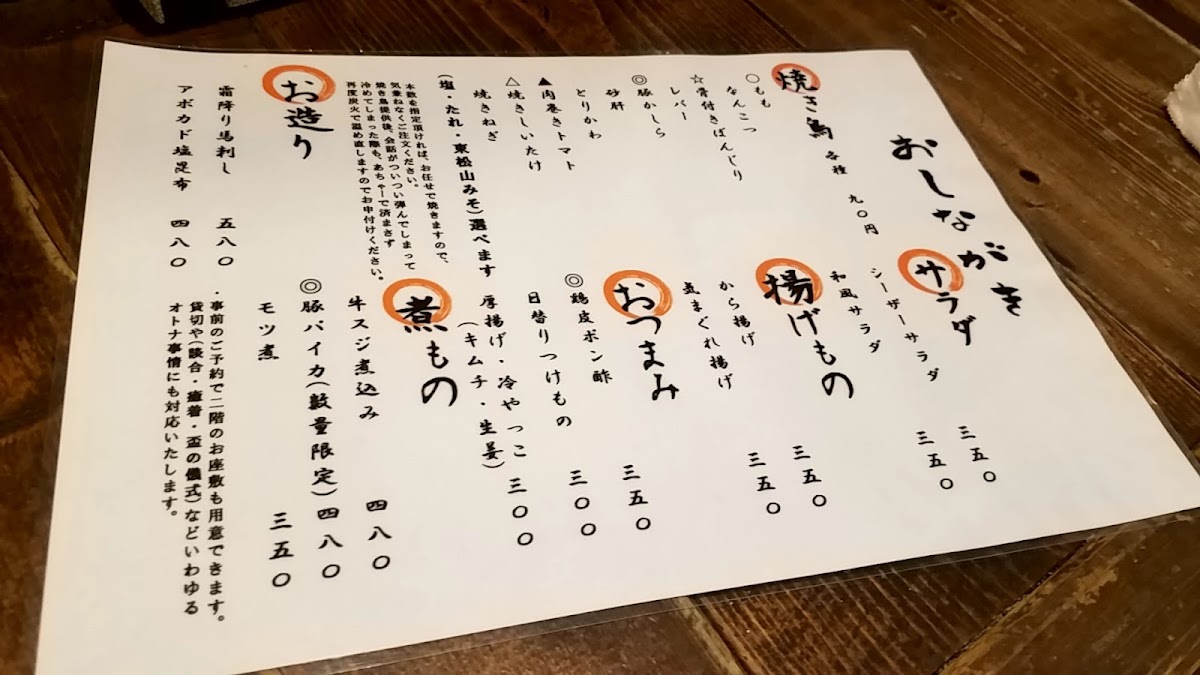 おしながき
焼き鳥 各種 九〇円
〇もも
なんこつ
☆骨付きぼんじり
レバー
◎豚かしら
砂肝
とりかわ
▲肉巻きトマト
△焼きしいたけ
焼きねぎ
(塩・たれ・東松山みそ)選べます
本数を指定頂ければ、お任せで焼きますので、
気兼ねなくご注文ください。
焼き鳥提供後、会話がついつい弾んでしまって
冷めてしまった際も、あちゃーで済まさず
再度炭火で温め直しますのでお申付けください。
お造り
霜降り馬刺し 五八〇
アボカド塩昆布 四八〇
サラダ
シーザーサラダ 三五〇
和風サラダ 三五〇
揚げもの
から揚げ 三五〇
気まぐれ揚げ 三五〇
おつまみ
◎鶏皮ポン酢 三五〇
日替りつけもの 三〇〇
厚揚げ・冷やっこ 三〇〇
(キムチ・生姜)
煮もの
牛スジ煮込み 四八〇
◎豚バイカ(数量限定) 四八〇
モツ煮 三五〇
・事前のご予約で二階のお座敷も用意できます。
貸切や(談合・癒着・盃の儀式)などいわゆる
オトナ事情にも対応いたします。